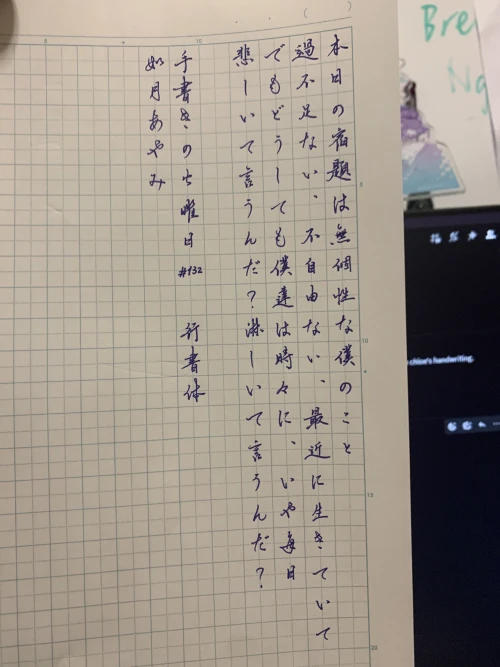 本日の宿題は無個性な僕のこと
過不足ない、不自由ない、最近に生きていて
でもどうしても僕達は時々に、いや毎日
悲しいて言うんだ？淋しいて言うんだ？
手書きの土曜日 #132 行書体
如月あやみ
Bre
Ng
chloe's handwriting.
5
10
15
20
10
5